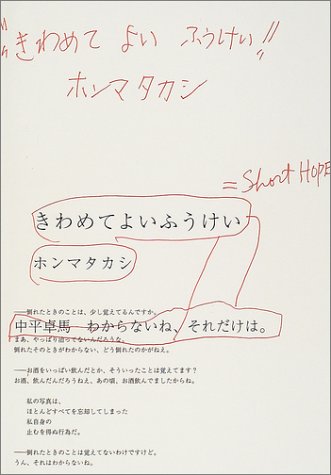 "きわめて よい ふうけい!!
ホンマタカシ
= Short HOPE
きわめてよいふうけい
ホンマタカシ
——倒れたときのことは、少し覚えてるんですか。
中平卓馬 わからないね、それだけは。
まあ、やっぱり酒ってないんだろうな。
倒れたそのときがわからない、どう倒れたのかがねえ。
——お酒をいっぱい飲んだとか、そういったことは覚えてます?
お酒、飲んだんだろうねえ、あの頃、お酒飲んでましたからね。
私の写真は、
ほとんどすべてを忘却してしまった
私自身の
止むを得ぬ行為だ。
——倒れたときのことは覚えてないわけですけど。
うん、それはわからないね。